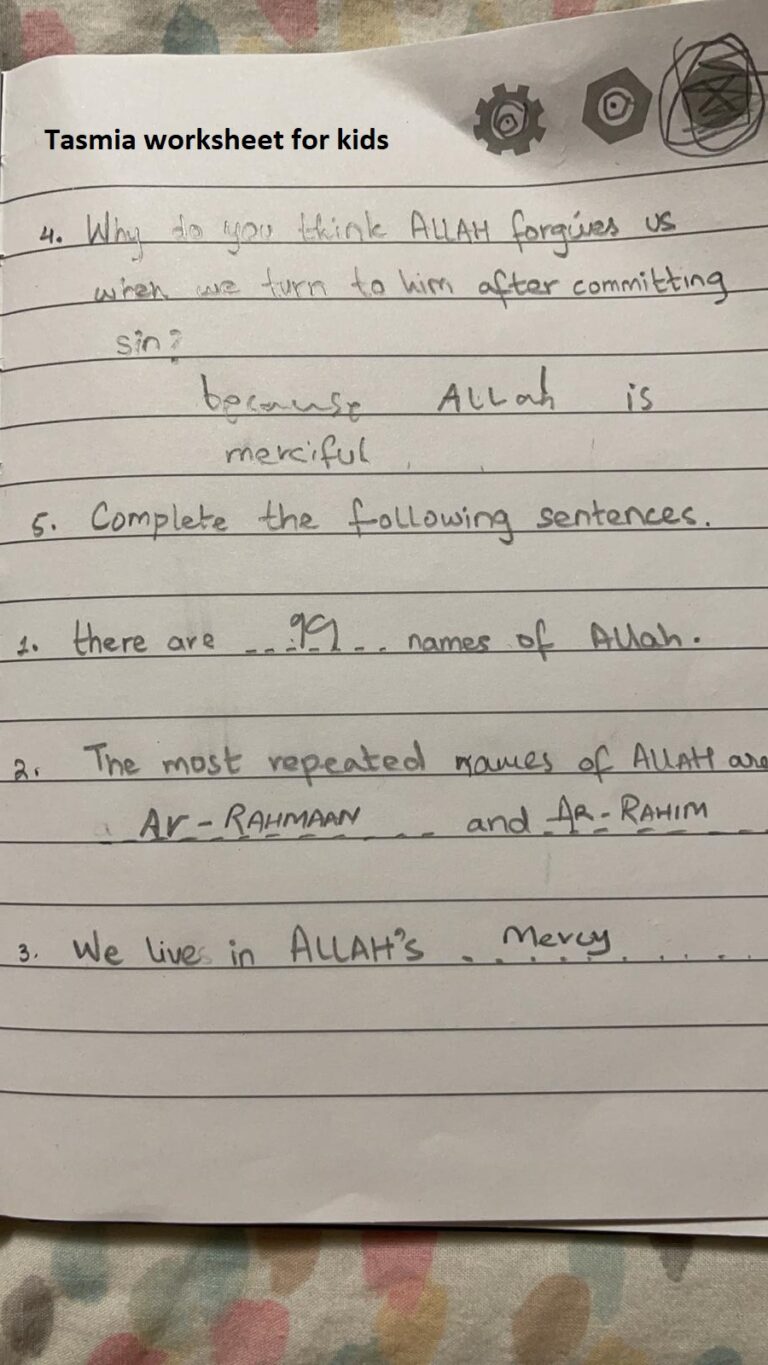 Tasmia worksheet for kids
4. Why do you think ALLAH forgives us
when we turn to him after committing
sin?
because ALLah is
merciful
5. Complete the following sentences.
1. there are 99 names of Allah.
2. The most repeated names of ALLAH are
Ar-RAHMAAN and AR-RAHIM
3. We lives in ALLAH's Mercy